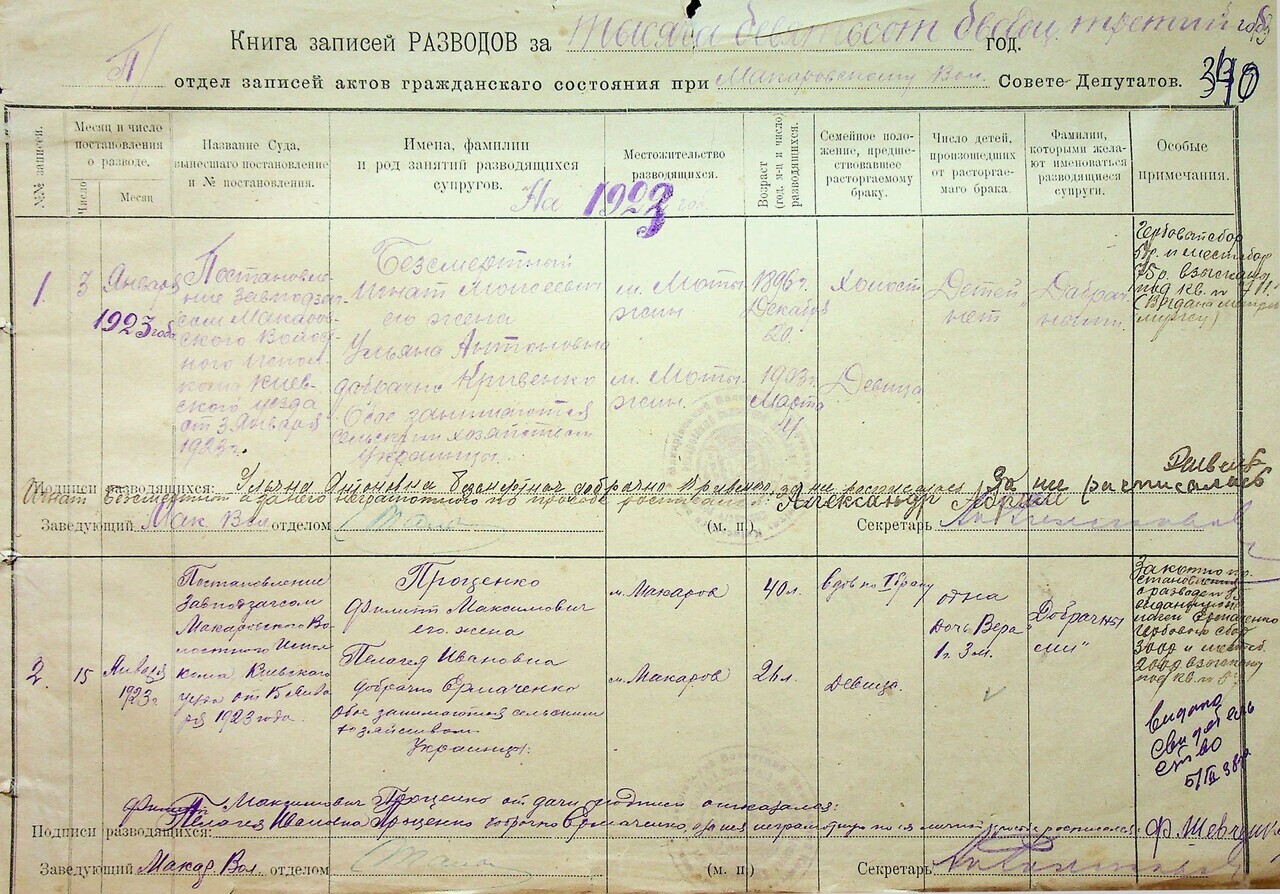 Книга записей РАЗВОДОВ за тысяча девятьсот двадц. третий год.
отдел записей актов гражданского состояния при Макаровскому Вол. Совете Депутатов.
№№ записи.
Месяц и число постановления о разводе.
Число
Месяц
Название Суда, вынесшаго постановление и № постановления.
Имена, фамилии и род занятий разводящихся супругов.
Местожительство разводящихся.
Возраст (год, м-ц и число) разводящихся.
Семейное положение, предшествовавшее расторгаемому браку.
Число детей, произошедших от расторгаемаго брака.
Фамилии, которыми желают именоваться разводящиеся супруги.
Особые примечания.
На 1923 год.
1.
3
Января
1923 года
Постановле-
ние Завподзаг-
сом Макаров-
ского Волос-
ного Испол-
кома Киев-
ского уезда
от 3 Января
1923 г.
Безсмертный
Игнат Моисеевич
его жена
Ульяна Антоновна
добрачно Кривенко
Обое занимаются
сельским хозяйством
Украинцы.
м. Моты-
жин
м. Моты-
жин.
1896 г.
Декабря
20.
1903 г.
Марта
4.
Холост
Девица
Детей
нет
Добрач-
ными.
Гербовый сбор
взыскано
под кв. №
Подписи разводящихся: Ульяна Антоновна Безмертная добрачно Кривенко
За не росписалась
Игнат Безсмертный а за него неграмотного по
Александр
Заведующий Мак Вол отделом
(м. п.)
Секретарь
2.
15
Января
1923 г
Постановление
Завподзагсом
Макаровского Во-
лостного Испол-
кома Киевского
уезда от 15 Янва-
ря 1923 года.
Проценко
Филипп Максимович
его жена
Пелагея Ивановна
добрачно Ермаченко
Обое занимаются сельским
хозяйством
Украинцы.
м. Макаров
м. Макаров
40 л.
26 л.
вдов по I браку
Девица.
одна
дочь Вера
1 г. 3 м.
"Добрачны-
ми"
о разводе
Гербовый сбор
3000 и местсб.
2000 взыскано
под кв. №
Видано
свидетель
ство
5/IV 38 г.
Филипп Максимович Проценко от дачи подписи отказался:
Пелагея Ивановна Проценко добрачно Ермаченко, а за нея неграмотную по ея личной просьбе росписался:
Подписи разводящихся:
Ф. Шевченко
Заведующий Макар. Вол. отделом
(м. п.)
Секретарь